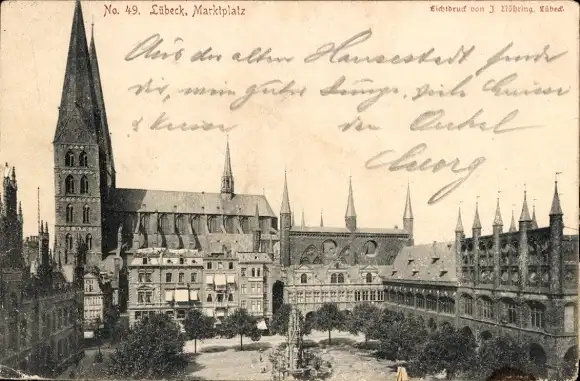 No. 49. Lübeck, Marktplatz
Lichtdruck von J. Nöhring, Lübeck.
Aus der alten Hansestadt sende
dir, mein guter Junge, viele Grüsse
& Küsse
dein Onkel
Georg